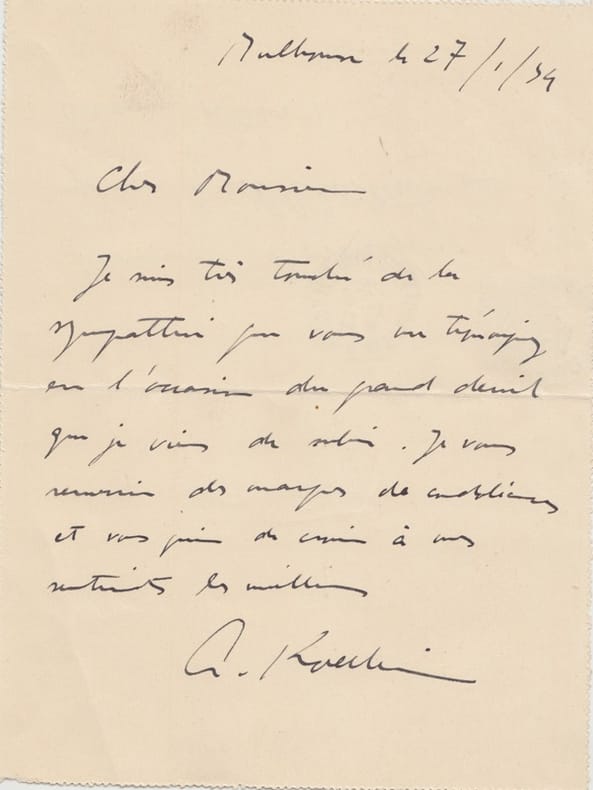 Mulhouse le 27/1/34
Cher Monsieur
Je suis très touché de la
sympathie que vous me témoignez
en l'occasion du grand deuil
que je viens de subir. Je vous
remercie des marques de condoléances
et vous prie de croire à mes
sentiments les meilleurs
Koechlin